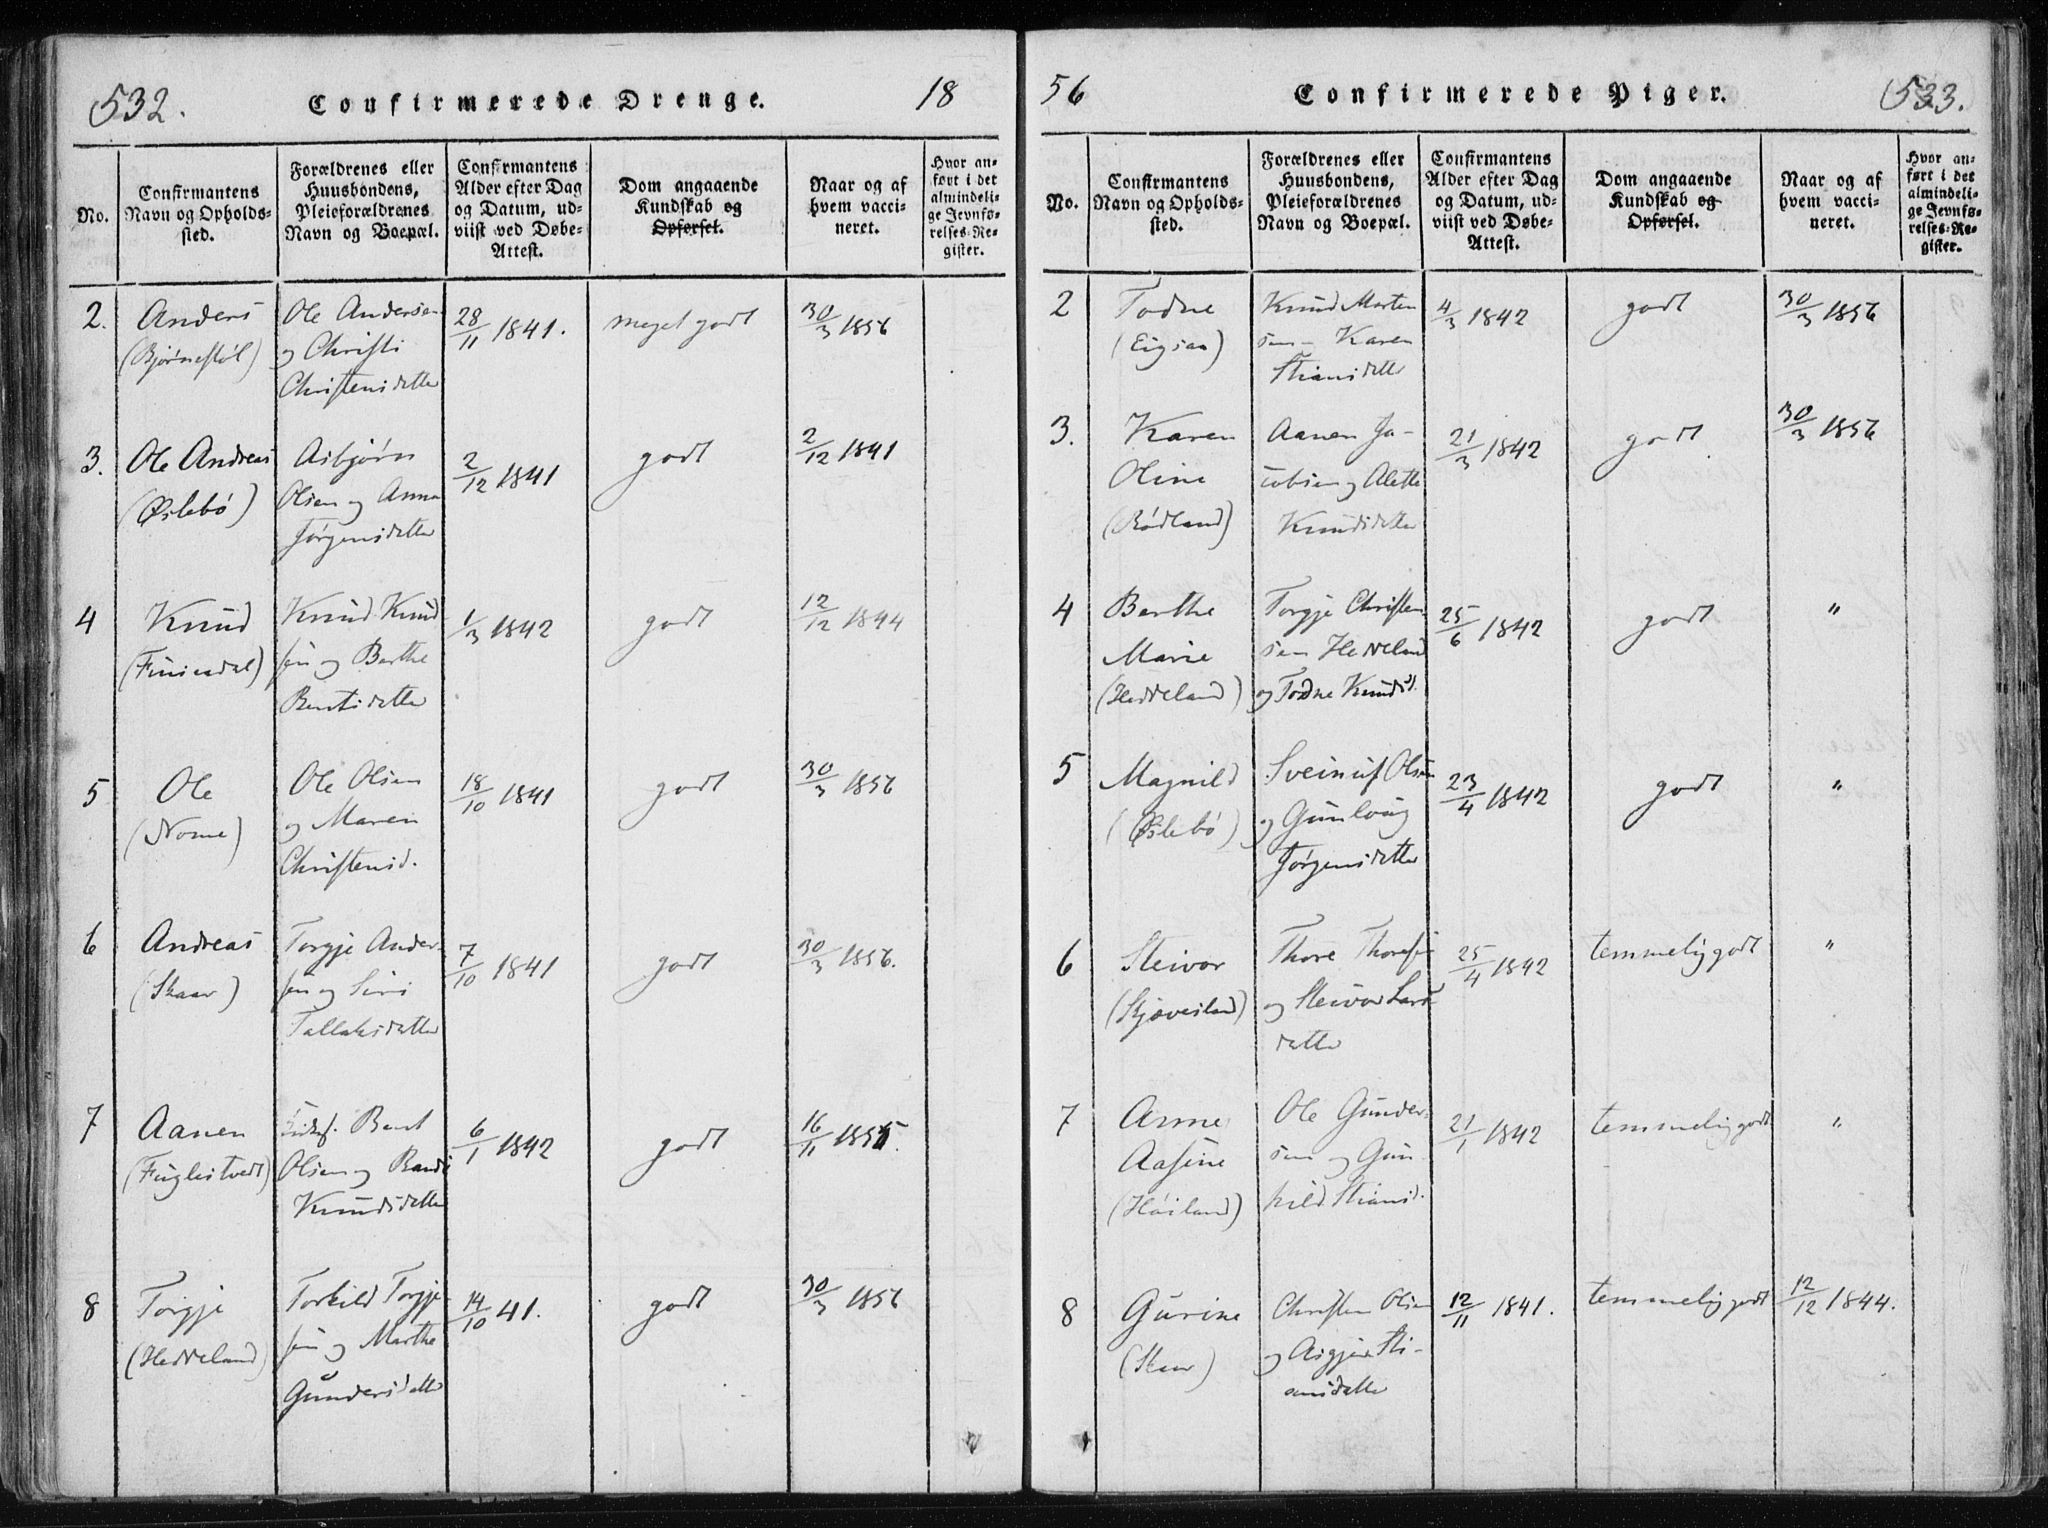 532.
Confirmerede Drenge.
18
No.
Confirmantens Navn og Opholds-sted.
Forældrenes eller Huusbondens, Pleieforældrenes Navn og Boepæl.
Confirmantens Alder efter Dag og Datum, ud-viist ved Døbe-Attest.
Dom angaaende Kundskab og Opførsel.
Naar og af hvem vacci-neret.
Hvor an-ført i det almindeli-ge Jevnfø-relses-Re-gister.
2. Anders (Bjørnestøl)
Ole Andersen og Christi Christensdatter
28/11 1841.
meget godt
30/3 1856
3. Ole Andreas (Øslebø)
Asbjørn Olsen og Anna Jørgensdatter
2/12 1841
godt
2/12 1841
4 Knud (Finsesdal)
Knud Knudsen og Berthe Bentsdatter
1/3 1842
godt
12/12 1844
5 Ole (Nome)
Ole Olsen og Maren Christensd.
18/10 1841
godt
30/3 1856
6 Andreas (Skaar)
Torgje Andersen og Siri Tallaksdatter
7/10 1841
godt
30/3 1856.
7 Aanen (Fuglestvedt)
Bent Olsen og Knudsdatter
6/1 1842
godt
16/11 1855.
8 Torgje (Heddeland)
Torkild Torgjesen og Marthe Gundersdatter
14/10 41.
godt
30/3 1856
56
Confirmerede Piger.
533.
No.
Confirmantens Navn og Opholds-sted.
Forældrenes eller Huusbondens, Pleieforældrenes Navn og Boepæl.
Confirmantens Alder efter Dag og Datum, ud-viist ved Døbe-Attest.
Dom angaaende Kundskab og Opførsel.
Naar og af hvem vacci-neret.
Hvor an-ført i det almindeli-ge Jevnfø-relses-Re-gister.
2 Todne (Eigsaa)
Knud Mortensen - Karen Stiansdatter
4/3 1842
godt
30/3 1856
3. Karen Oline (Rødland)
Aanen Jacobsen og Alette Knudsdatter
21/3 1842
godt
30/3 1856
4 Berthe Marie (Heddeland)
Torgje Christensen Heddeland og Todne Knudsd.
25/6 1842
godt
"
5 Magnild (Øslebø)
Sveinuf Olsen og Gunlaug Jørgensdatter
23/4 1842
godt
"
6 Steivor (Skjævesland)
Thore Thoresen og Steivor Larsdatter
25/4 1842
temmelig godt
"
7 Anne Aasine (Høiland)
Ole Gundersen og Gunhild Stiansd.
21/1 1842
temmelig godt
"
8 Gurine (Skaar)
Christen Olsen og Asgjerd Stiansdatter
12/11 1841.
temmelig godt
12/12 1844.